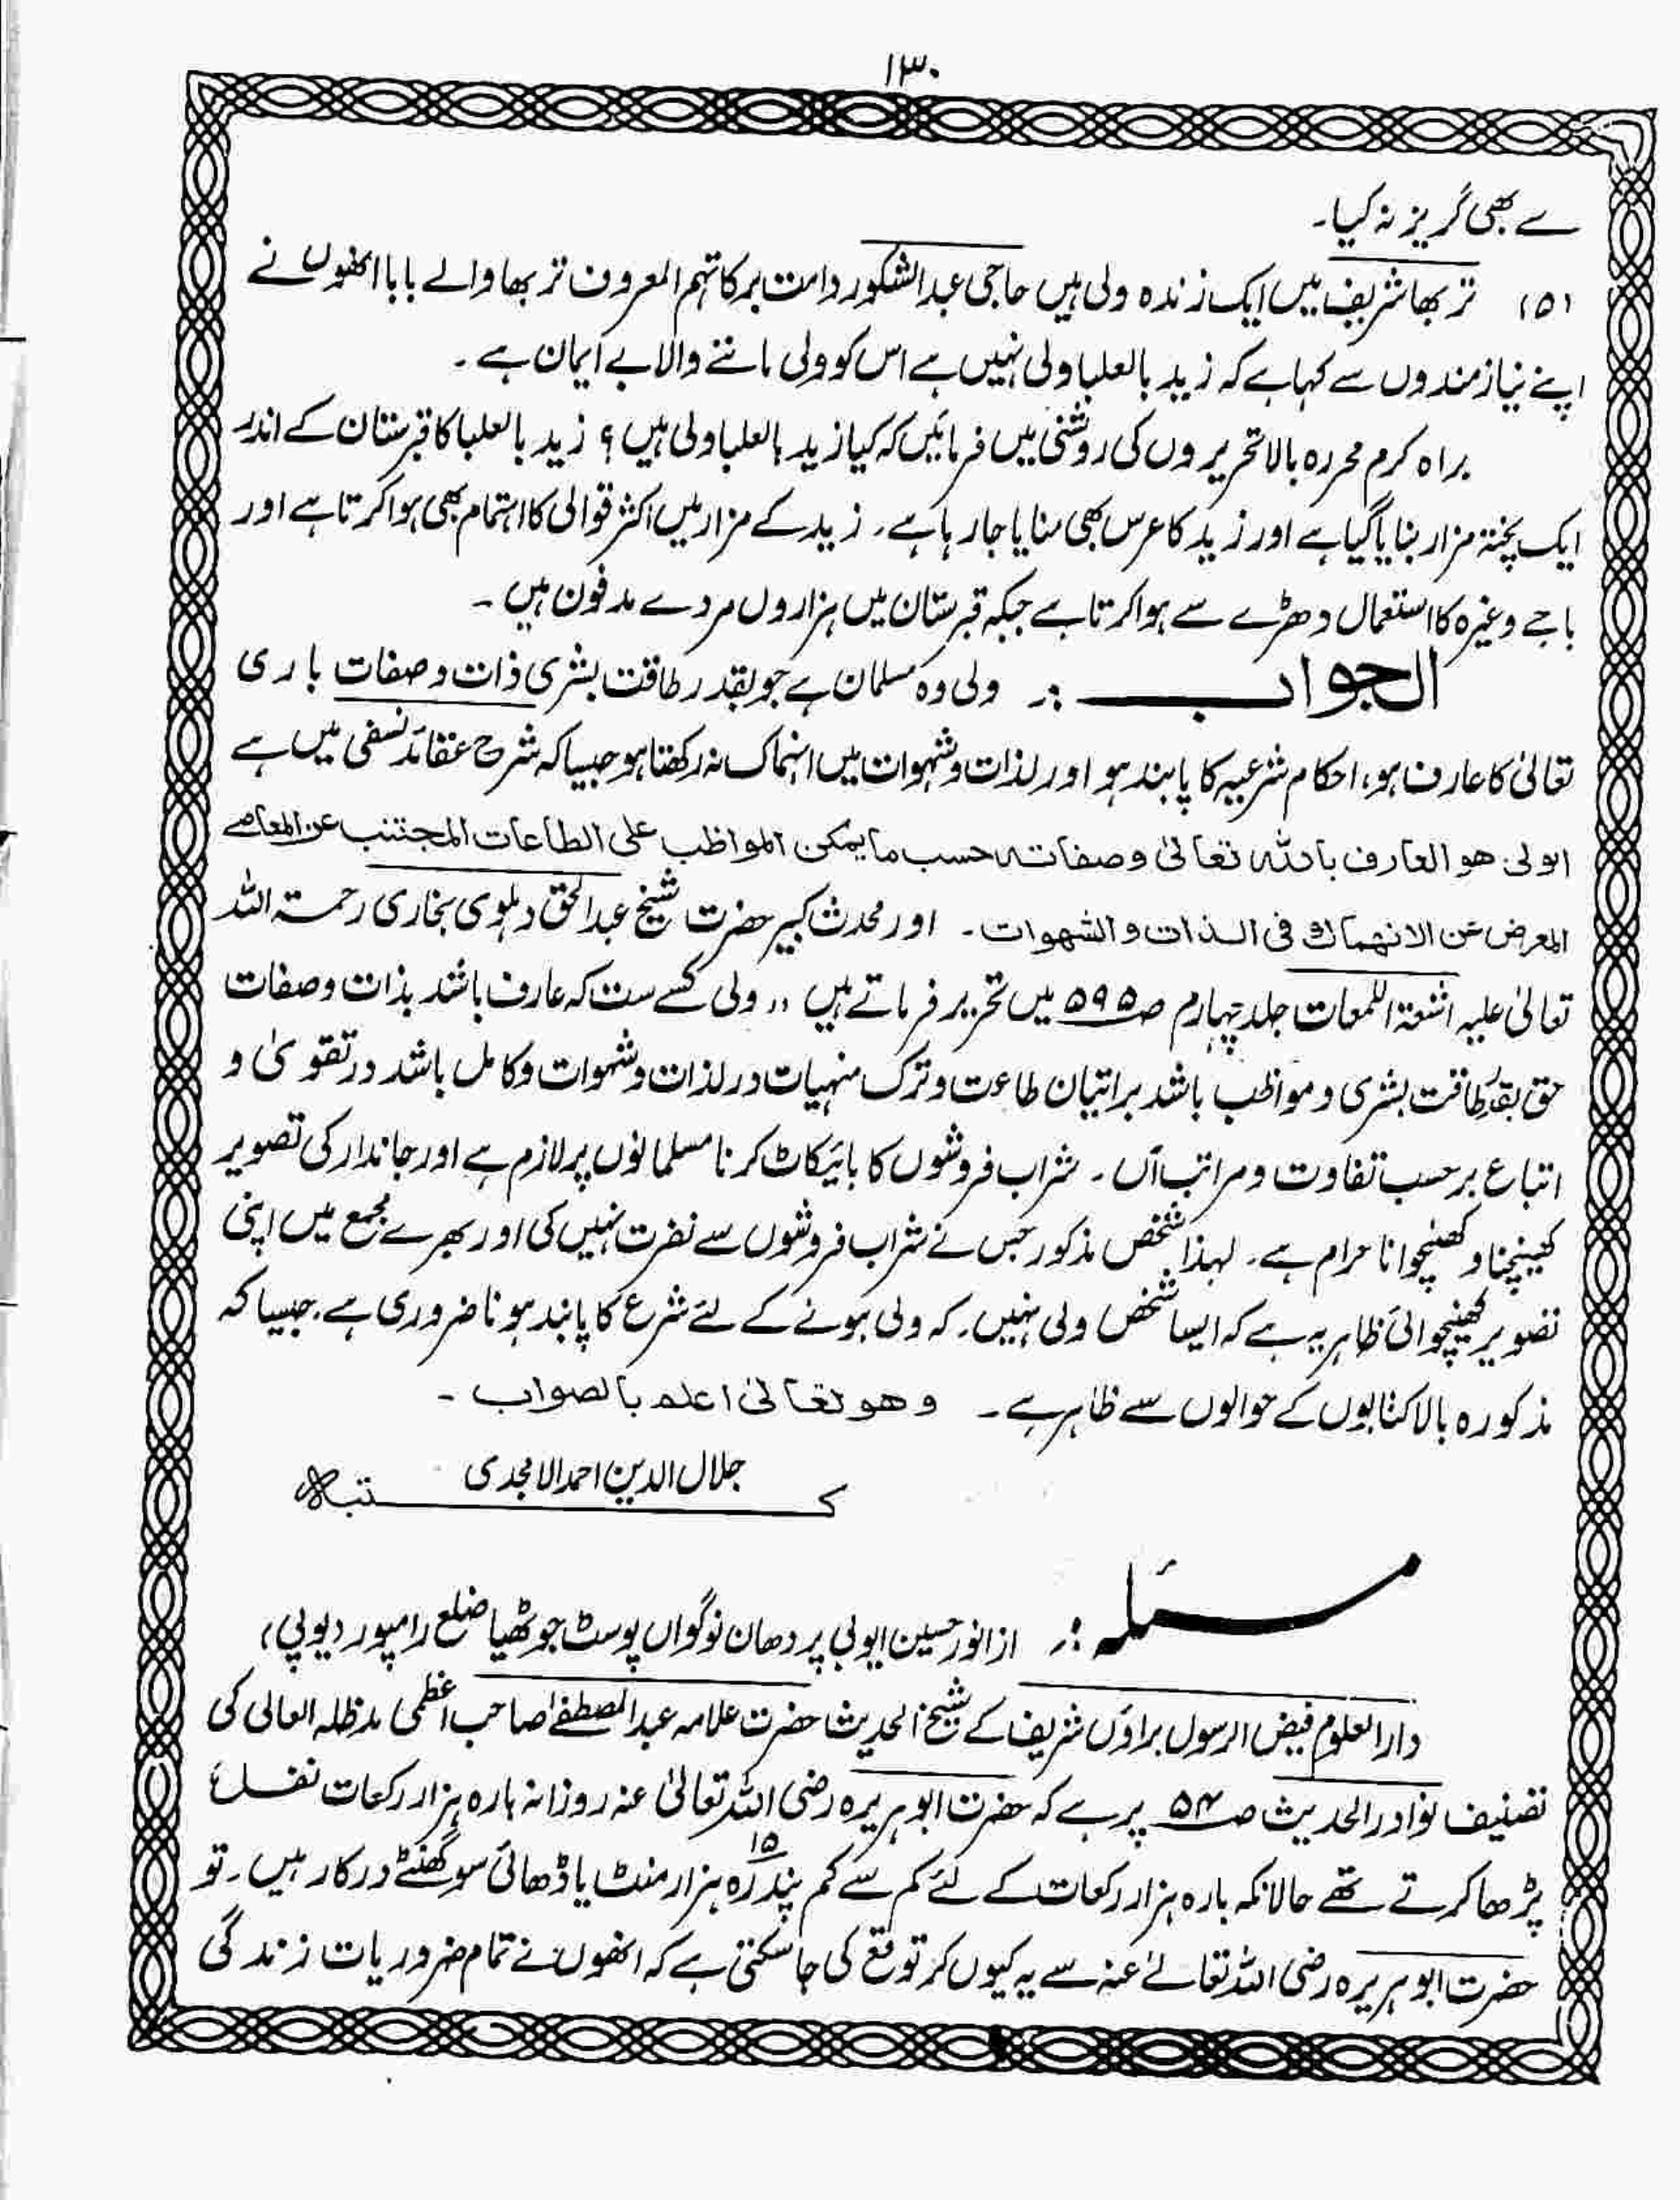 ۱۳۰
سے بھی گریز نہ کیا۔
(۵) تربھا شریف میں ایک زندہ ولی ہیں حاجی عبدالشکور دامت برکاتہم المعروف تربھا والے بابا انھوں نے
اپنے نیاز مندوں سے کہا ہے کہ زید بالعلبا ولی نہیں ہے اس کو ولی ماننے والا بے ایمان ہے۔
براہ کرم محررہ بالا تحریروں کی روشنی میں فرمائیں کہ کیا زید بالعلبا ولی ہیں؟ زید بالعلبا کا قبرستان کے اندر
ایک پختہ مزار بنایا گیا ہے اور زید کا عرس بھی منایا جارہا ہے۔ زید کے مزار میں اکثر قوالی کا اہتمام بھی ہوا کرتا ہے اور
باجے وغیرہ کا استعمال دھڑے سے ہوا کرتا ہے جبکہ قبرستان میں ہزاروں مردے مدفون ہیں۔
الجواب :۔ ولی وہ مسلمان ہے جو بقدر طاقت بشری ذات و صفات باری
تعالیٰ کا عارف ہو، احکام شرعیہ کا پابند ہو اور لذات و شہوات میں انہماک نہ رکھتا ہو جیسا کہ شرح عقائد نسفی میں ہے
الولی ھو العارف باللہ تعالیٰ وصفاتہ حسب ما یمکن المواظب علی الطاعات المجتنب عن المعاصی
المعرض عن الانھماک فی اللذات والشھوات۔ اور محدث کبیر حضرت شیخ عبدالحق دہلوی بخاری رحمۃ اللہ
تعالیٰ علیہ اشعۃ اللمعات جلد چہارم ص۵۹۵ میں تحریر فرماتے ہیں ,, ولی کسے ست کہ عارف باشد بذات و صفات
حق بقدر طاقت بشری و مواظب باشد بر اتیان طاعت و ترک منہیات در لذات و شہوات و کامل باشد در تقویٰ و
اتباع برحسب تفاوت و مراتب آں۔ شراب فروشوں کا بائیکاٹ کرنا مسلمانوں پر لازم ہے اور جاندار کی تصویر
کھینچنا و کھنچوانا حرام ہے۔ لہذا شخص مذکور جس نے شراب فروشوں سے نفرت نہیں کی اور بھرے مجمع میں اپنی
تصویر کھینچوائی ظاہر یہ ہے کہ ایسا شخص ولی نہیں۔ کہ ولی ہونے کے لئے شرع کا پابند ہونا ضروری ہے۔ جیسا کہ
مذکورہ بالا کتابوں کے حوالوں سے ظاہر ہے۔ وھو تعالیٰ اعلم بالصواب۔
جلال الدین احمد الامجدی
کتبہ
مسئلہ :۔ از انور حسین ایوبی پردھان نوگواں پوسٹ جوٹھیا ضلع رامپور (یوپی)
دارالعلوم فیض الرسول براؤں شریف کے شیخ الحدیث حضرت علامہ عبدالمصطفےٰ صاحب اعظمی مدظلہ العالی کی
تصنیف نوادر الحدیث ص۵۴ پر ہے کہ حضرت ابوہریرہ رضی اللہ تعالیٰ عنہ روزانہ بارہ ہزار رکعات نفل
پڑھا کرتے تھے حالانکہ بارہ ہزار رکعات کے لئے کم سے کم پندرہ ۱۵ ہزار منٹ یا ڈھائی سو گھنٹے درکار ہیں۔ تو
حضرت ابوہریرہ رضی اللہ تعالےٰ عنہ سے یہ کیوں کر توقع کی جاسکتی ہے کہ انھوں نے تمام ضروریات زندگی